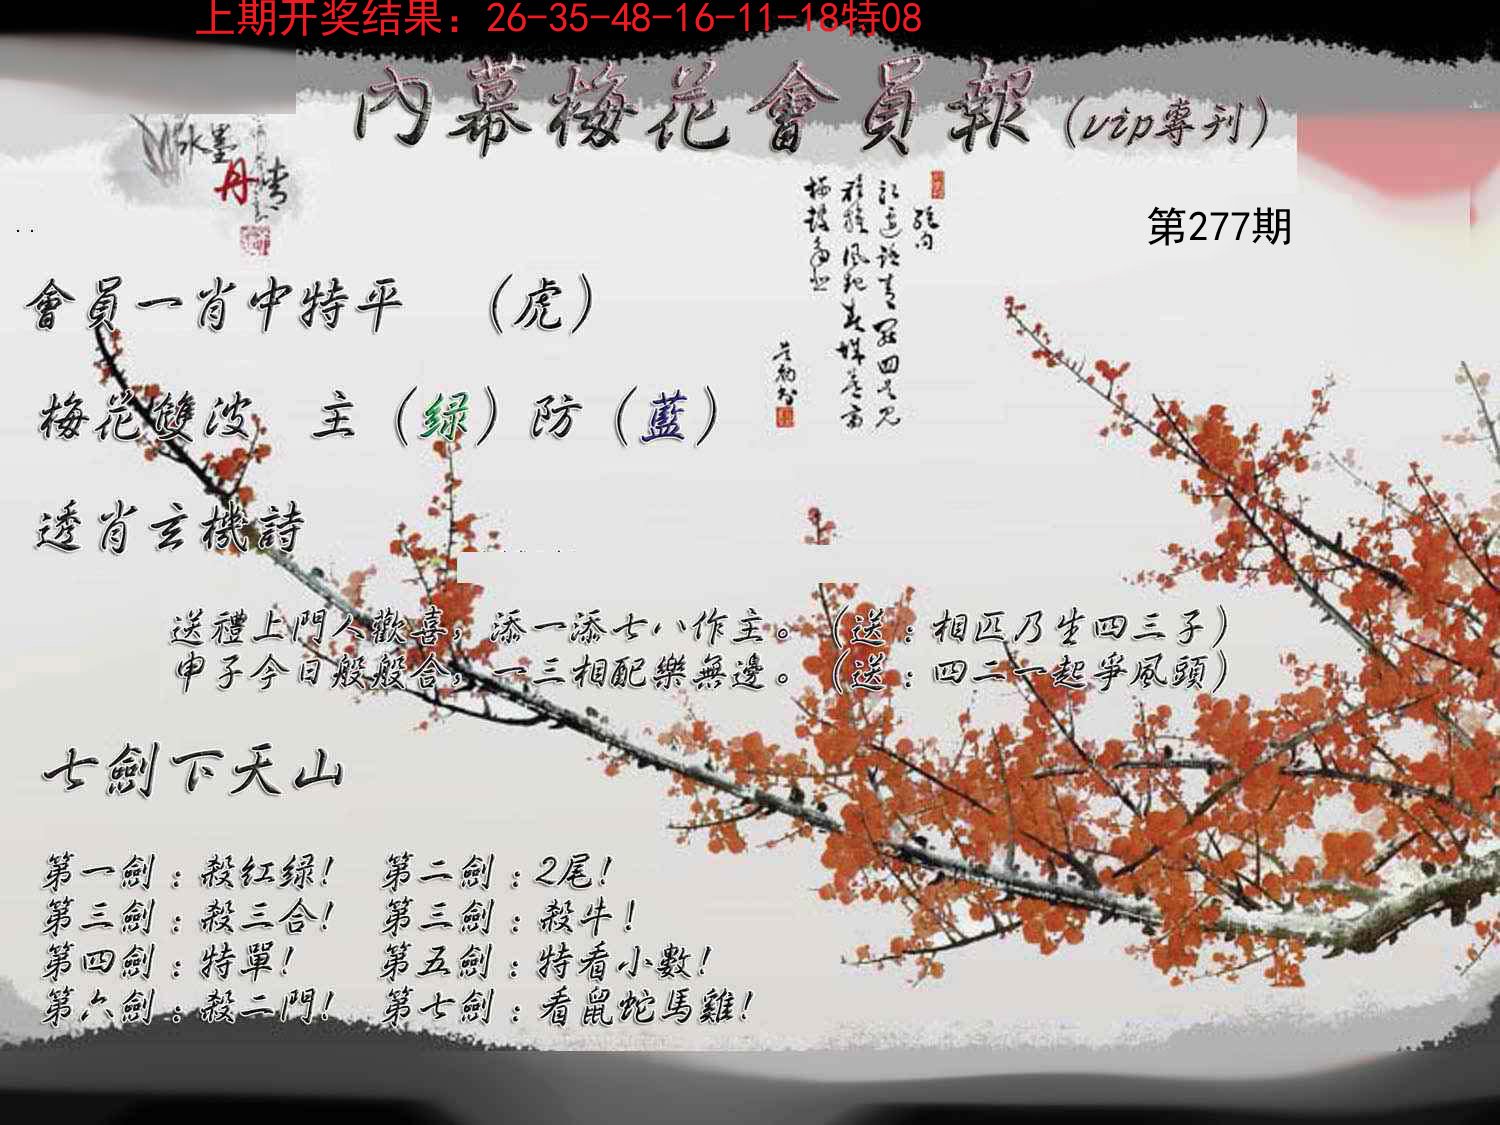 上期开奖结果：26-35-48-16-11-18特08
內幕梅花會員報（vip專刊）
水墨
丹情
第277期
會員一肖中特平　（虎）
梅花雙波　主（绿）防（藍）
透肖玄機詩
送禮上門人歡喜，添一添七八作主。（送：相匹乃生四三子）
申子今日般般合，一三相配樂無邊。（送：四二一起爭風頭）
七劍下天山
第一劍：殺紅绿！　第二劍：2尾！
第三劍：殺三合！　第三劍：殺牛！
第四劍：特單！　第五劍：特看小數！
第六劍：殺二門！　第七劍：看鼠蛇馬雞！